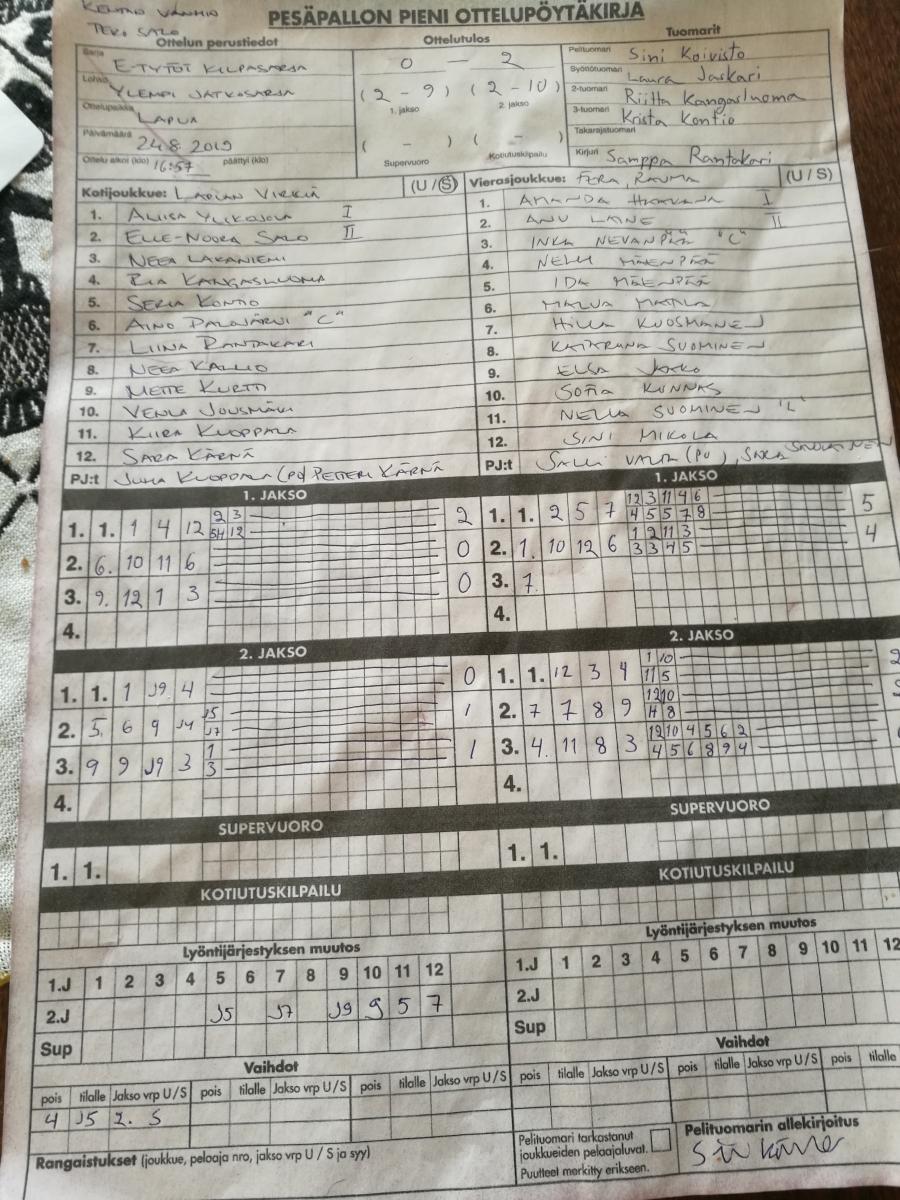 TERO SALO
PESÄPALLON PIENI OTTELUPÖYTÄKIRJA
Ottelun perustiedot
Sarja
E-TYTÖT KILPASARJA
Lohko
YLEMPI JATKOSARJA
Ottelupaikka
LAPUA
Päivämäärä
24.8.2019
Ottelu alkoi (klo) 16:57 päättyi (klo)
Ottelutulos
0 - 2
(2 - 9) (2 - 10)
1. jakso 2. jakso
( - ) ( - )
Supervuoro Kotiutuskilpailu
Tuomarit
Pelituomari Sini Koivisto
Syöttötuomari Laura Jaskari
2-tuomari Riitta Kangasluoma
3-tuomari Krista Kontio
Takarajatuomari
Kirjuri Samppa Rantakari
Kotijoukkue: LAPUAN VIRKIÄ (U / S)
1. ALIISA YLIKOJOLA I
2. ELLE-NOORA SALO II
3. NEEA LAKANIEMI
4. PIA KANGASLUOMA
5. SERIA KONTIO
6. AINO PALOJÄRVI "C"
7. LIINA RANTAKARI
8. NEEA KALLIO
9. METTE KURTTI
10. VENLA JOUSMÄKI
11. KIIRA KUOPPALA
12. SARA KÄRNÄ
PJ:t JUHA KUOPPALA (PJ) PETTERI KÄRNÄ
Vierasjoukkue: FERA, RAUMA (U / S)
1. AMANDA I
2. ANU LAINE II
3. INKA NEVANPÄÄ "C"
4. NELLI MÄENPÄÄ
5. IDA MÄENPÄÄ
6. MALVA MATTILA
7. HILLA KUOSMANEN
8. KATARIINA SUOMINEN
9. ELSA
10. SOFIA KUNNAS
11. NELLA SUOMINEN "L"
12. SINI MIKOLA
PJ:t SALLI VALTA (PJ),
1. JAKSO
1. 1. 1 4 12 2 3 2
54 12
2. 6. 10 11 6 0
3. 9. 12 1 3 0
4.
1. JAKSO
1. 1. 2 5 7 12 3 11 4 6 5
4 5 5 7 8
2. 1. 10 12 6 1 2 11 3 4
3 3 4 5
3. 7.
4.
2. JAKSO
1. 1. 1 J9 4 0
2. 5. 6 9 J4 J5 1
J7
3. 9 9 J9 3 1 1
3
4.
2. JAKSO
1. 1. 12 3 4 1 10 2
11 5
2. 7 7 8 9 12 10
4 8
3. 4. 11 8 3 12 10 4 5 6 2
4 5 6 8 9 4
4.
SUPERVUORO
1. 1.
SUPERVUORO
1. 1.
KOTIUTUSKILPAILU
KOTIUTUSKILPAILU
Lyöntijärjestyksen muutos
1.J 1 2 3 4 5 6 7 8 9 10 11 12
2.J J5 J7 J9 9 5 7
Sup
Lyöntijärjestyksen muutos
1.J 1 2 3 4 5 6 7 8 9 10 11 12
2.J
Sup
Vaihdot
pois tilalle Jakso vrp U/S pois tilalle Jakso vrp U/S pois tilalle Jakso vrp U/S
4 J5 2. S
Vaihdot
pois tilalle Jakso vrp U/S pois tilalle Jakso vrp U/S pois tilalle
Rangaistukset (joukkue, pelaaja nro, jakso vrp U / S ja syy)
Pelituomari tarkastanut
joukkueiden pelaajaluval.
Puutteet merkitty erikseen.
Pelituomarin allekirjoitus